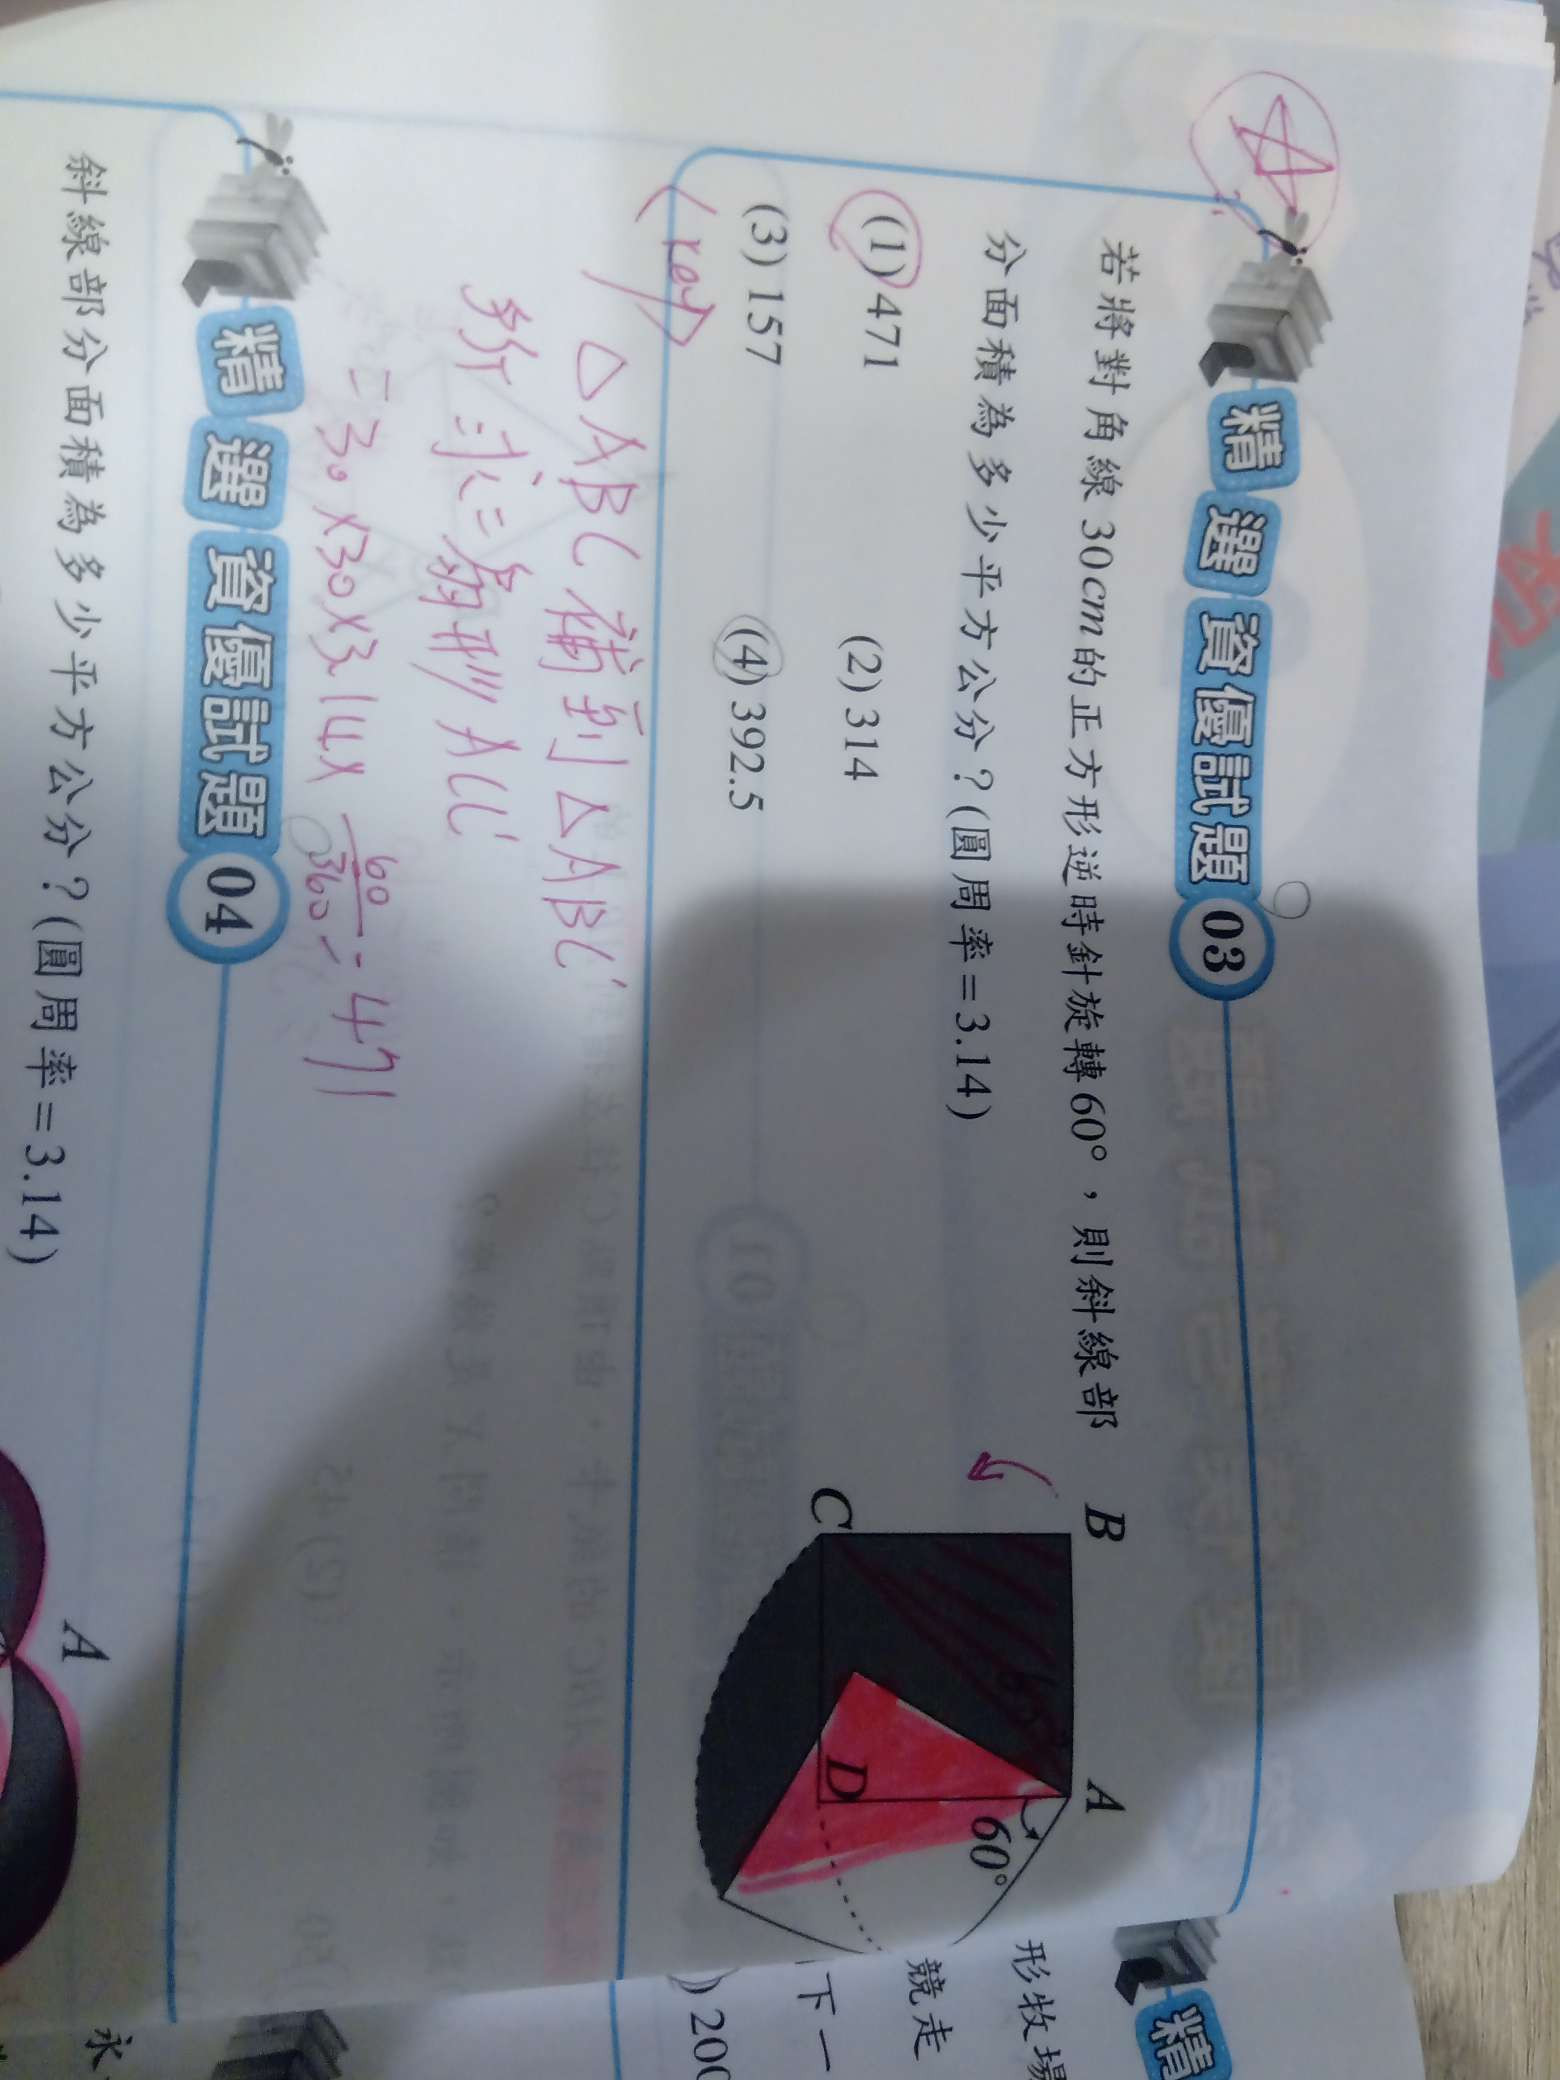 精選資優試題 03
若將對角線30cm的正方形逆時針旋轉60°，則斜線部
分面積為多少平方公分？(圓周率=3.14)
(1) 471
(2) 314
(3) 157
(4) 392.5
B
A
C
D
60°
<key>
△ABC 補到 △ABC'
所求=扇形ACC'
=30×30×3.14×60/360=471
精選資優試題 04
斜線部分面積為多少平方公分？(圓周率=3.14)
A
精
形牧場
競走
下一
) 200
永